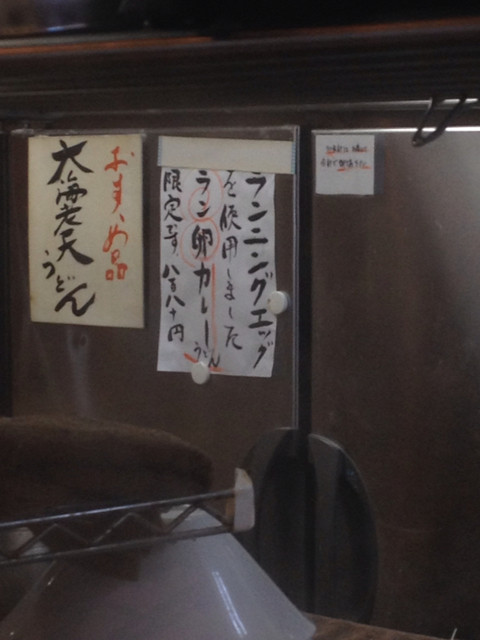 おすゝめ品
大海老天
うどん
ランニングエッグ
を使用しました
ラン卵カレーうどん
限定です。八百八十円